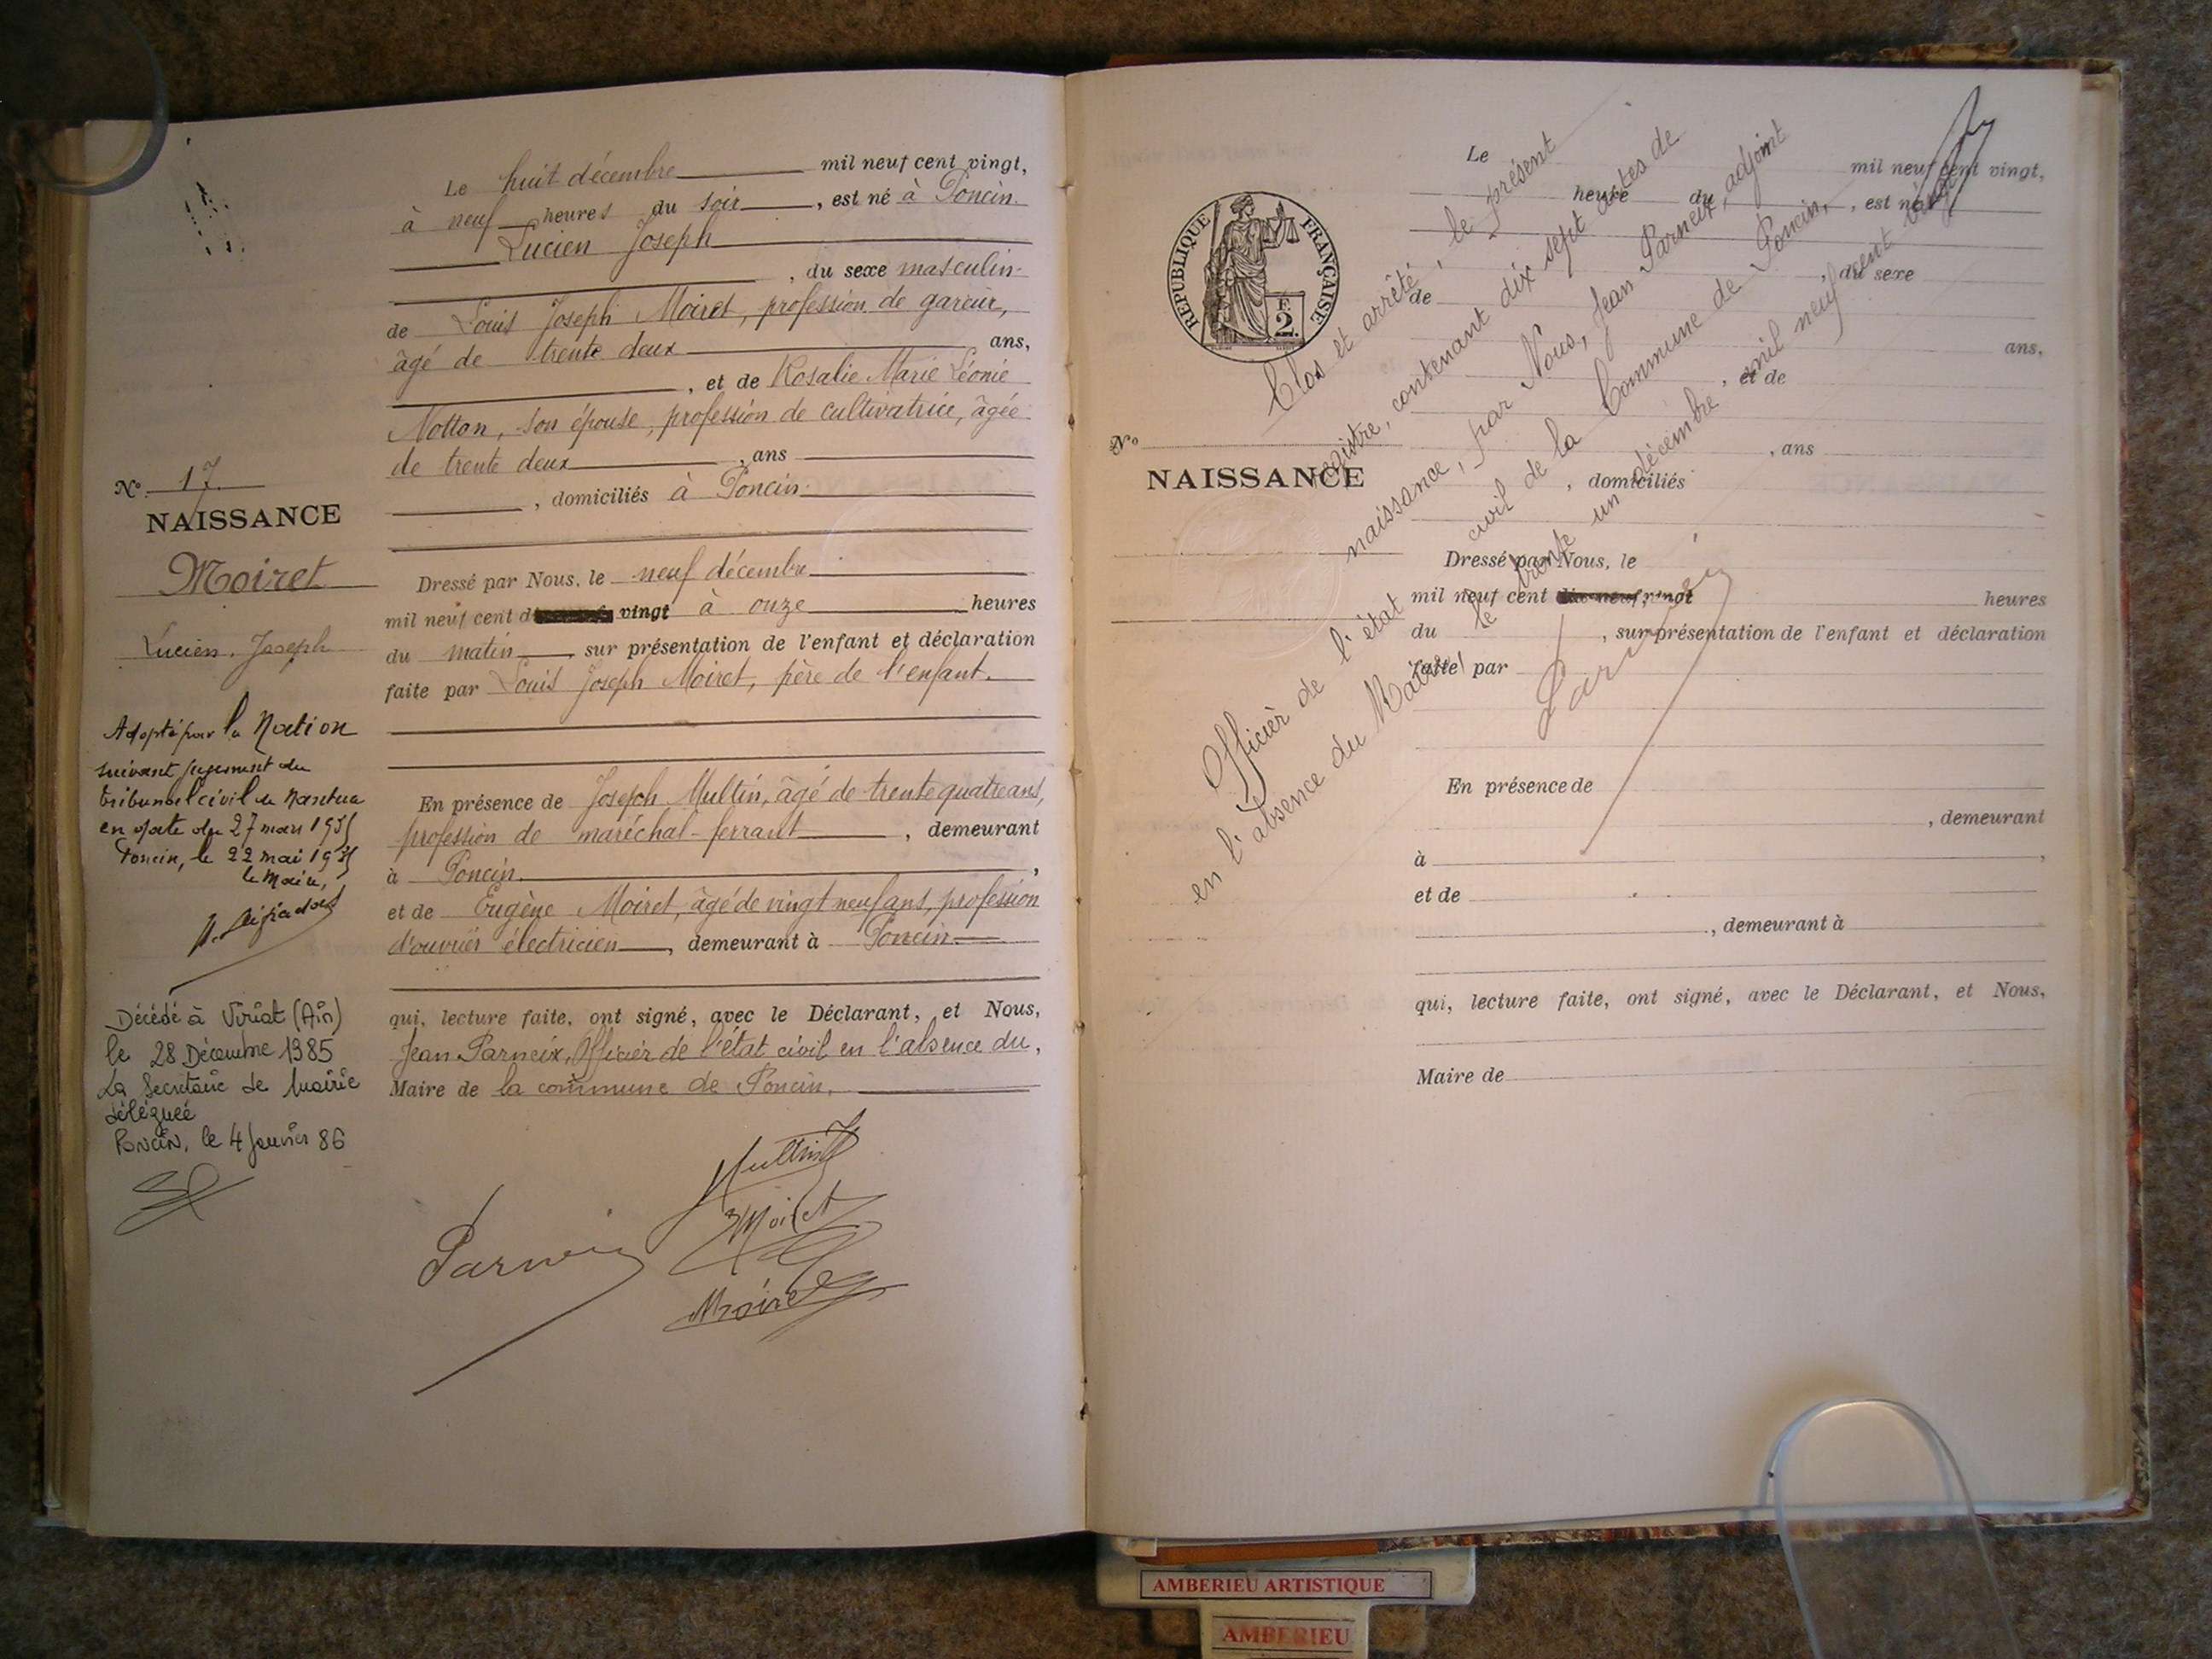 Le huit décembre mil neuf cent vingt,
à neuf heures du soir, est né à Poncin
Lucien Joseph
, du sexe masculin
de Louis Joseph Moiret, profession de gareur,
âgé de trente deux ans,
, et de Rosalie Marie Léonie
Notton, son épouse, profession de cultivatrice, âgée
de trente deux, ans
, domiciliés à Poncin
Nº 17.
NAISSANCE
Moiret
Lucien. Joseph
Dressé par Nous, le neuf décembre
mil neuf cent vingt à onze heures
du matin, sur présentation de l'enfant et déclaration
faite par Louis Joseph Moiret, père de l'enfant.
En présence de Joseph Multin, âgé de trente quatre ans,
profession de maréchal-ferrant, demeurant
à Poncin,
et de Eugène Moiret, âgé de vingt neuf ans, profession
d'ouvrier électricien, demeurant à Poncin
qui, lecture faite, ont signé, avec le Déclarant, et Nous,
Jean Parneix, Officier de l'état civil en l'absence du,
Maire de la commune de Poncin.
Adopté par la Nation
suivant jugement du
tribunal civil de Nantua
en date du 27 mars
Poncin, le 22 mai
le Maire,
Décédé à Viriat (Ain)
le 28 Décembre 1985
La Secrétaire de Mairie
déléguée
Poncin, le 4 Janvier 86
Multin
Moiret
Parneix
Moiret
RÉPUBLIQUE FRANÇAISE
F.
2.
Clos et arrêté, le présent
registre, contenant dix sept actes de
naissance, par Nous, Jean Parneix, adjoint
Officier de l'état civil de la Commune de Poncin,
en l'absence du Maire, le trente un décembre, mil neuf cent vingt
Parneix
Le mil neuf cent vingt,
heure du, est né
, du sexe
de
ans,
, et de
, ans
, domiciliés
Nº
NAISSANCE
Dressé par Nous, le
mil neuf cent dix-neuf vingt heures
du, sur présentation de l'enfant et déclaration
faite par
En présence de
, demeurant
à,
et de
, demeurant à
qui, lecture faite, ont signé, avec le Déclarant, et Nous,
Maire de
AMBERIEU ARTISTIQUE
AMBERIEU